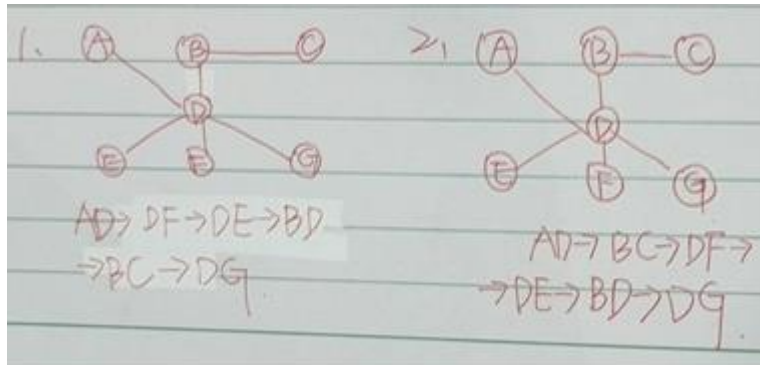 1. A B C
D
E F G
AD→ DF→DE→BD
→BC→DG.
2, A B C
D
E F G
AD→BC→DF→
→DE→BD→DG.